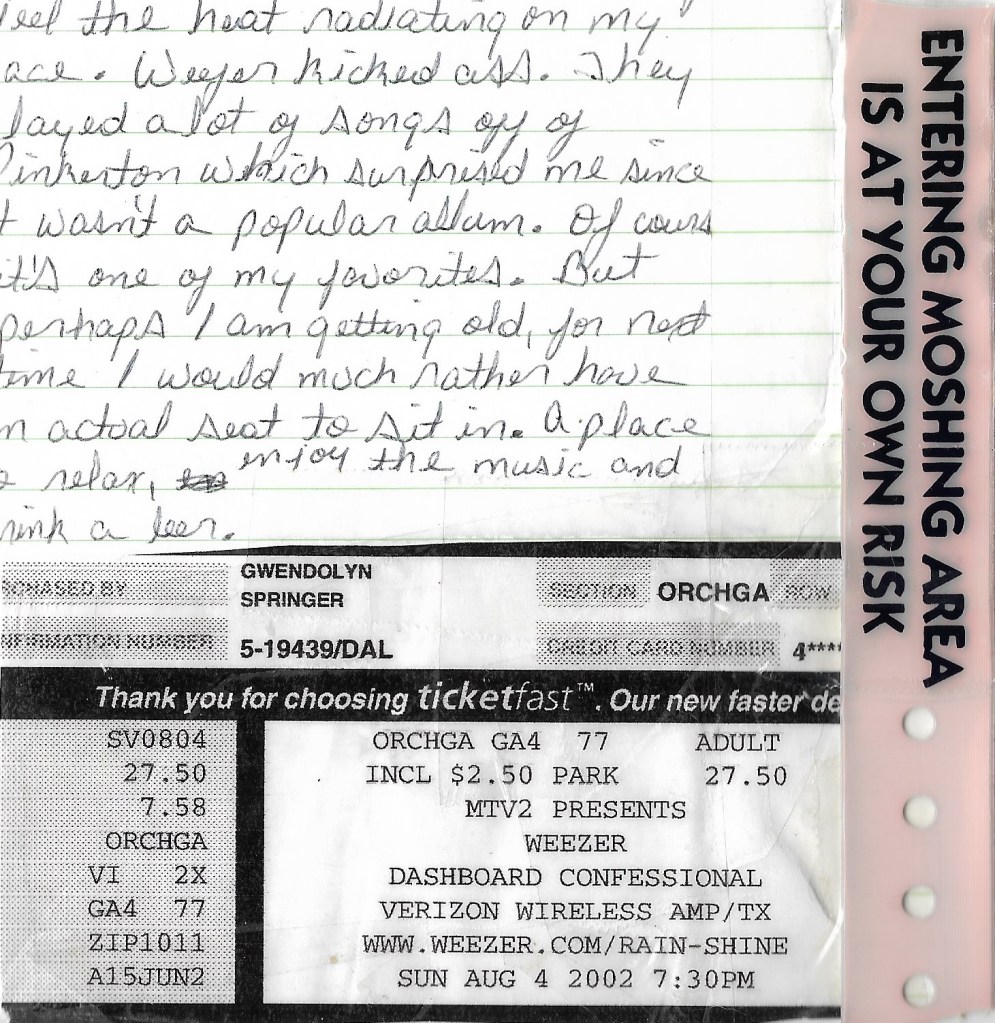 feel the heat radiating on my
ace. Weezer kicked ass. They
layed a lot of songs off of
Pinkerton which surprised me since
t wasn't a popular album. Of cours
it's one of my favorites. But
perhaps I am getting old, for next
time I would much rather have
n actual seat to sit in. A place
o relax, enjoy the music and
rink a beer.
CHASED BY GWENDOLYN SPRINGER SECTION ORCHGA ROW
NFIRMATION NUMBER 5-19439/DAL CREDIT CARD NUMBER 4****
Thank you for choosing ticketfast™. Our new faster de
SV0804
27.50
7.58
ORCHGA
VI 2X
GA4 77
ZIP1011
A15JUN2
ORCHGA GA4 77 ADULT
INCL $2.50 PARK 27.50
MTV2 PRESENTS
WEEZER
DASHBOARD CONFESSIONAL
VERIZON WIRELESS AMP/TX
WWW.WEEZER.COM/RAIN-SHINE
SUN AUG 4 2002 7:30PM
ENTERING MOSHING AREA
IS AT YOUR OWN RISK